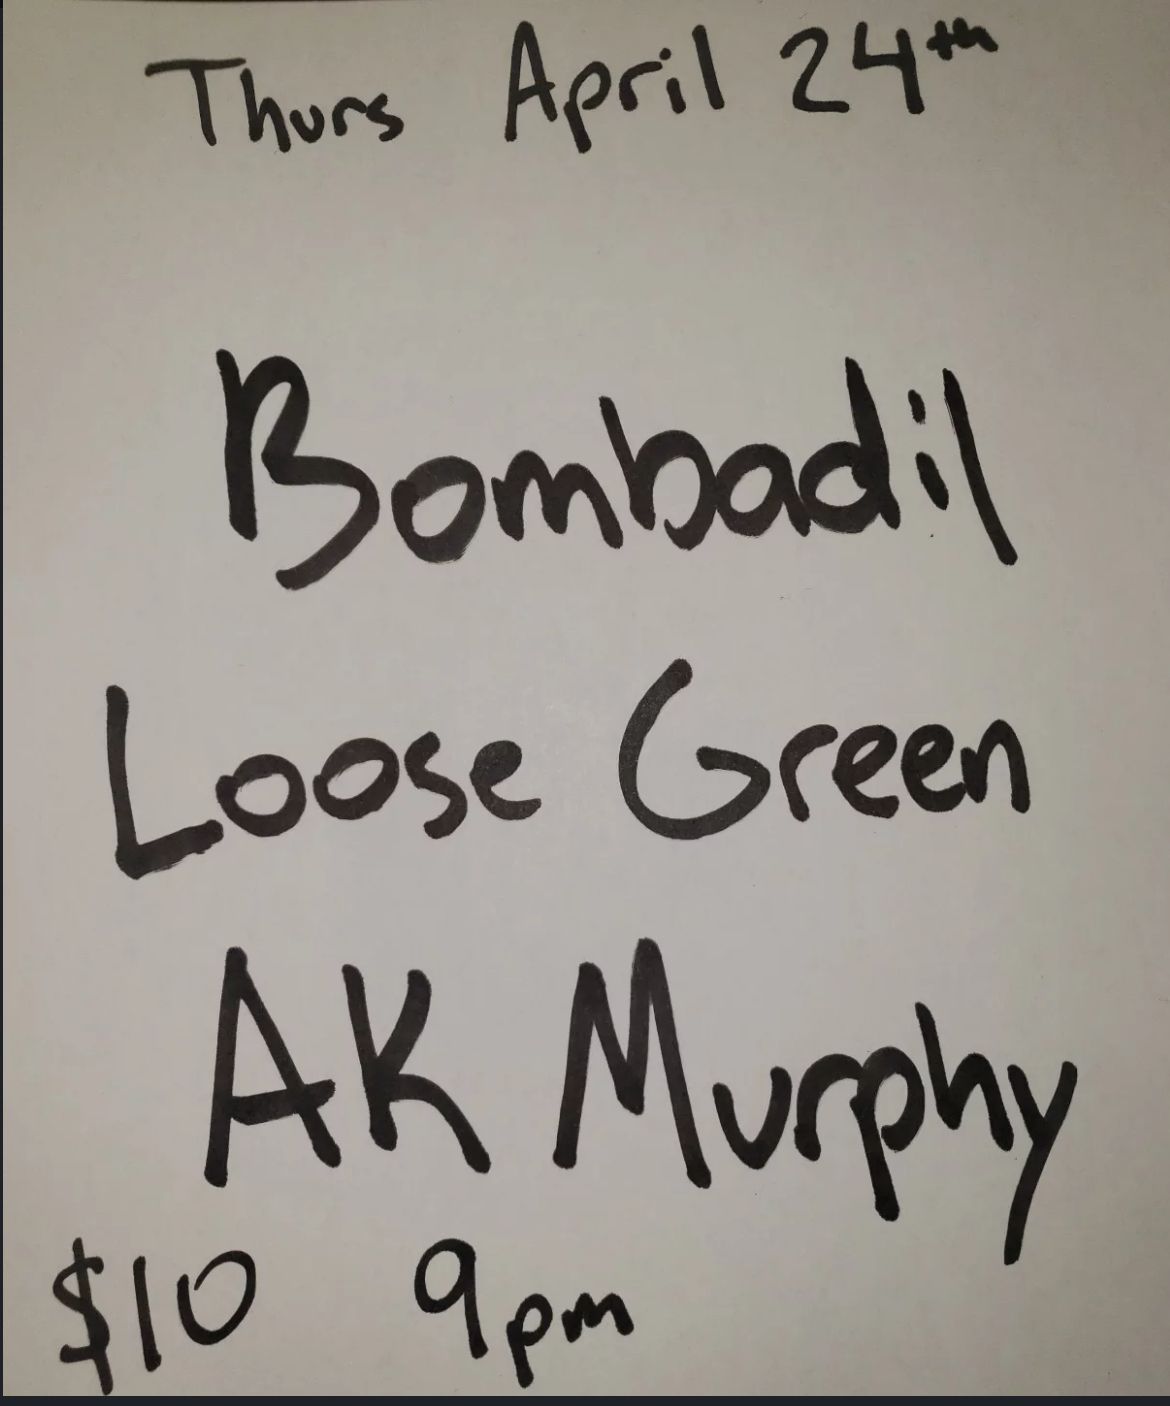 Thurs April 24th
Bombadil
Loose Green
AK Murphy
$10 9pm